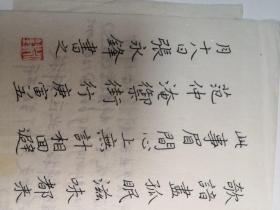 欹諳盡孤眠滋味都來
此事眉間心上無計相迴避
范仲淹御街行庚寅五
月十八日張永鋒書之